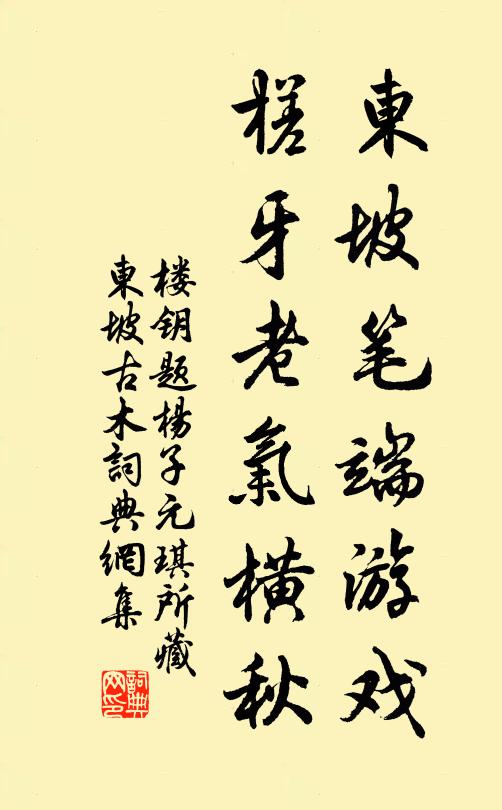 東坡笔端游戏
槎牙老氣横秋
楼钥题楊子元琪所藏
東坡古木詞典網集
詞典
网印